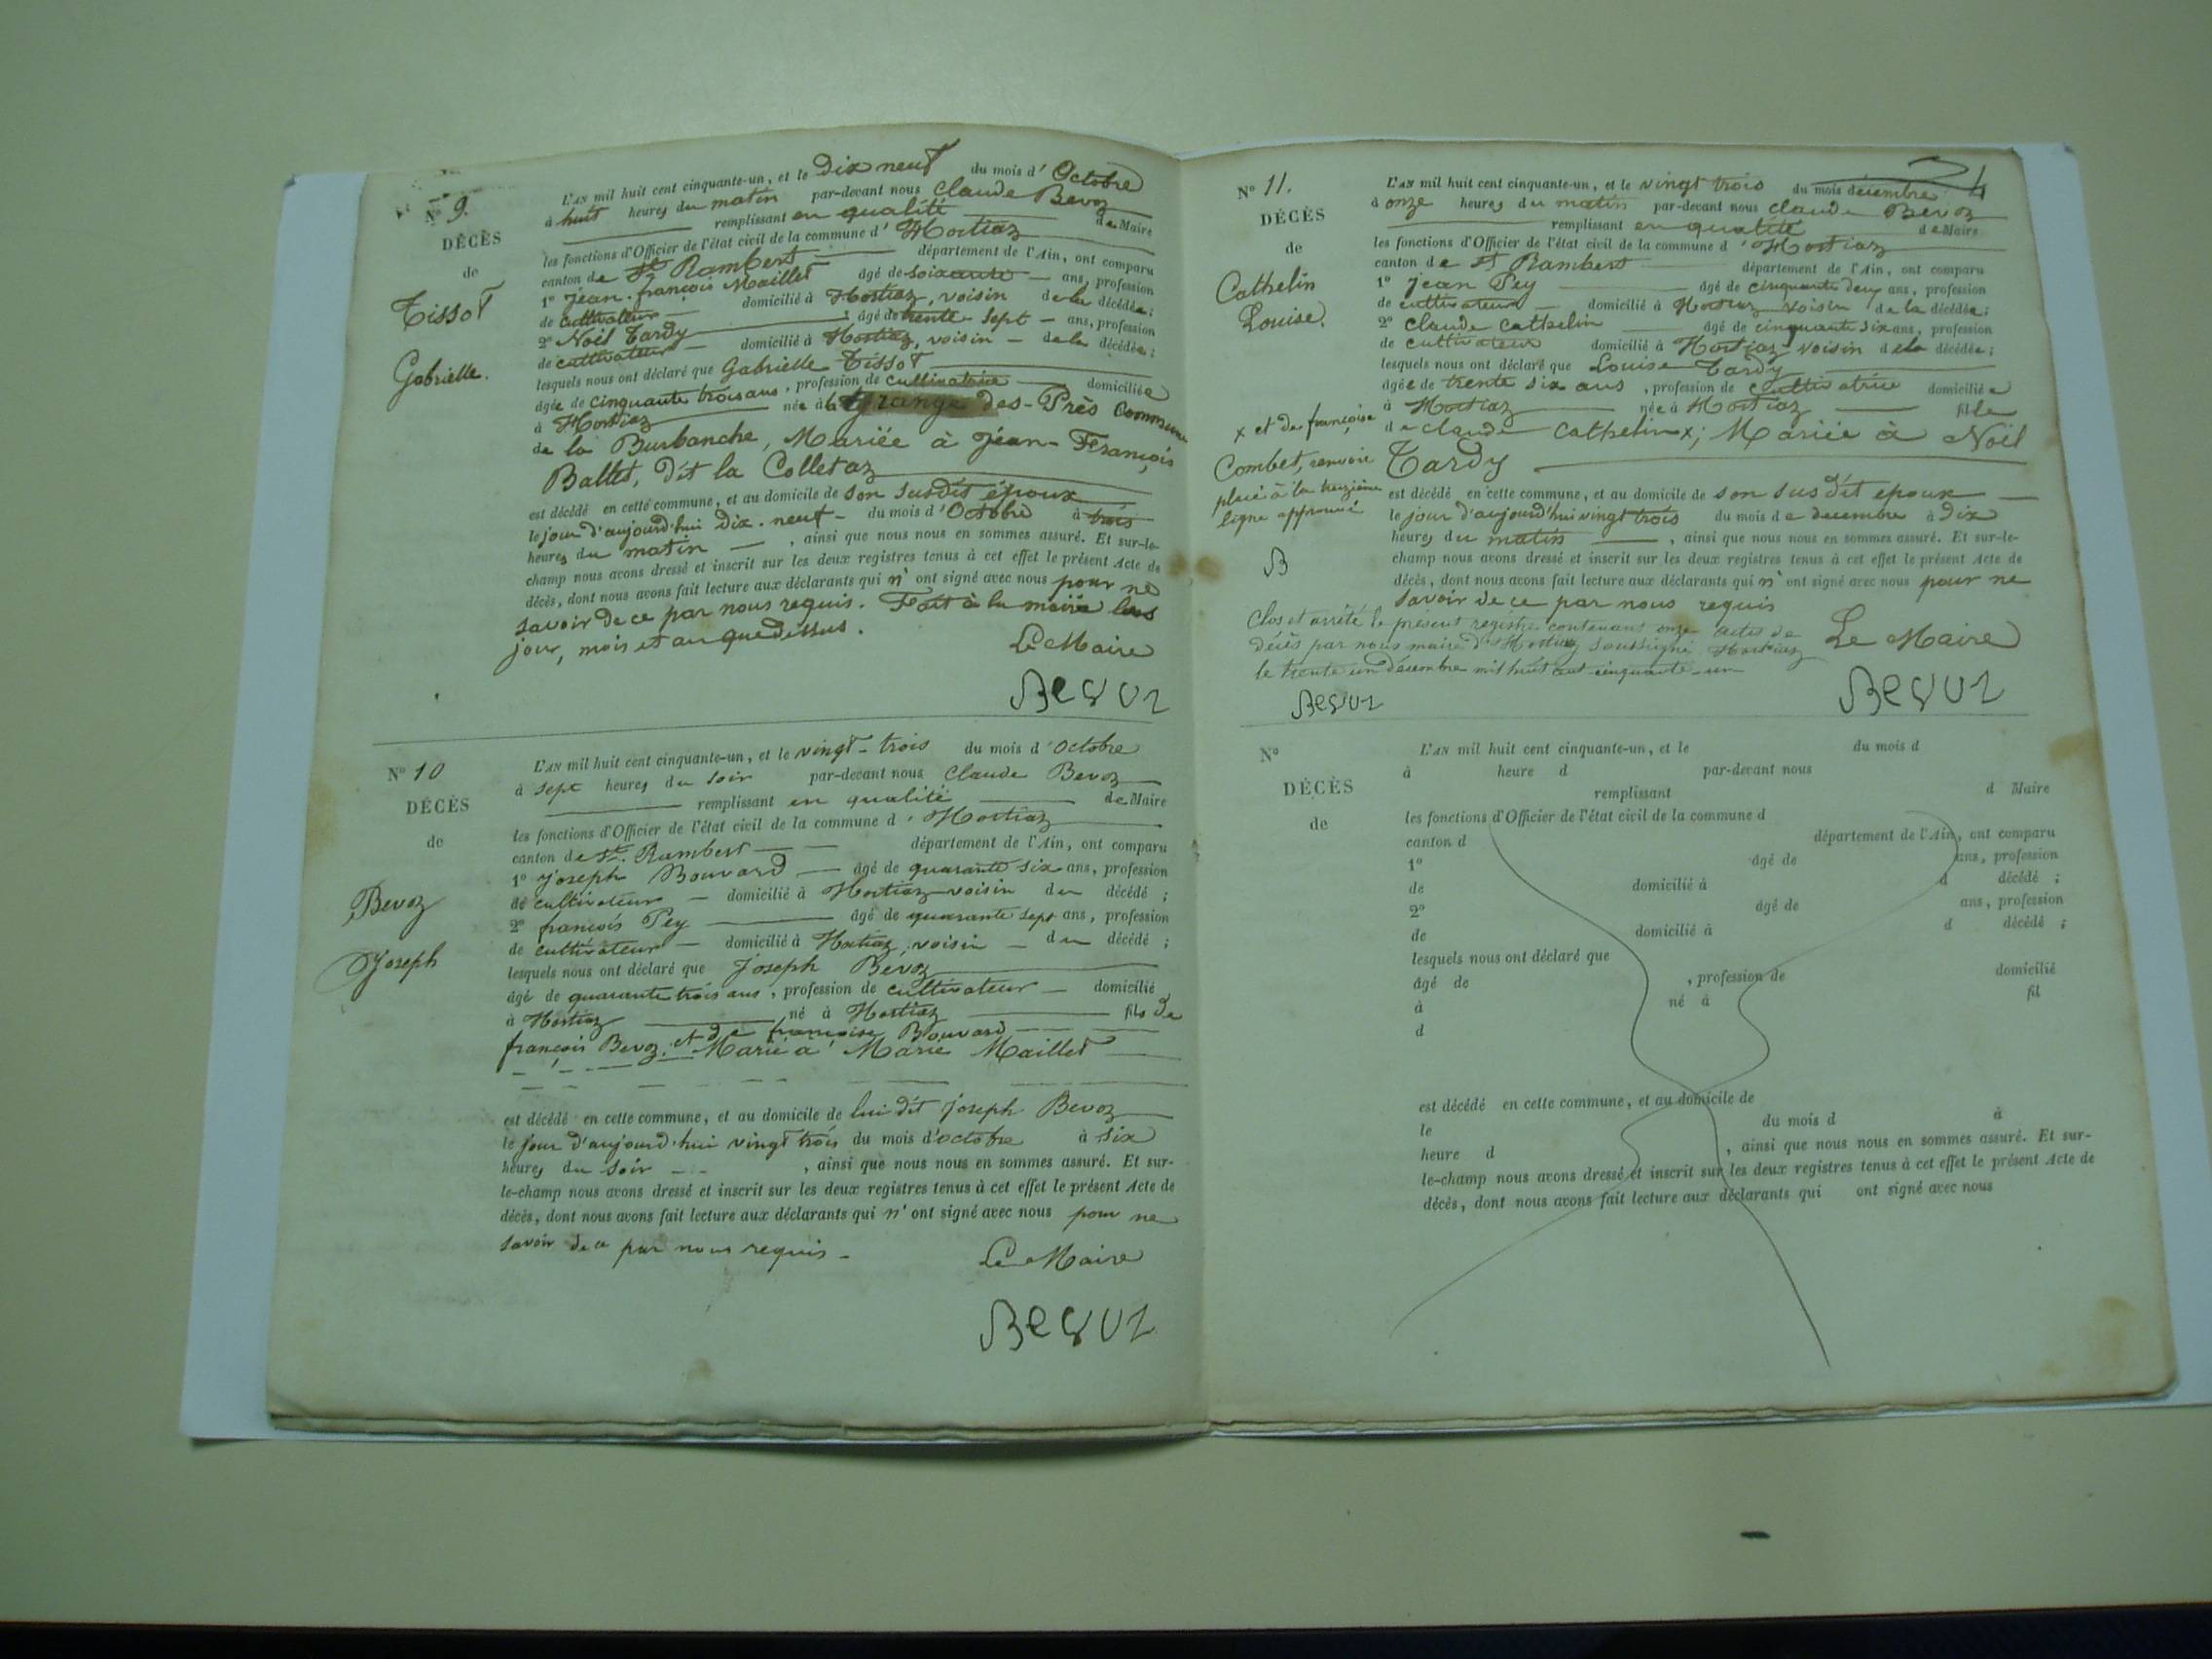 N° 9.
DÉCÈS
de
Tissot
Gabrielle.
L'AN mil huit cent cinquante-un, et le Dix neuf du mois d'Octobre
à huit heures du matin par-devant nous Claude Bevoz
remplissant en qualité de Maire
les fonctions d'Officier de l'état civil de la commune d'Hostiaz
canton de St Rambert département de l'Ain, ont comparu
1° Jean-françois Maillet âgé de soixante ans, profession
de cultivateur domicilié à Hostiaz, voisin de la décédée;
2° Noël Tardy âgé de trente-sept ans, profession
de cultivateur domicilié à Hostiaz, voisin de la décédée;
lesquels nous ont déclaré que Gabrielle Tissot
âgée de cinquante trois ans, profession de cultivatrice domiciliée
à Hostiaz née à la grange des-Près Commune
de la Burbanche, Mariée à Jean-François
Ballet, dit la Colletaz
est décédé en cette commune, et au domicile de son susdit époux
le jour d'aujourd'hui Dix-neuf du mois d'Octobre à trois
heures du matin, ainsi que nous nous en sommes assuré. Et sur-le-
champ nous avons dressé et inscrit sur les deux registres tenus à cet effet le présent Acte de
décès, dont nous avons fait lecture aux déclarants qui n'ont signé avec nous pour ne
savoir de ce par nous requis. Fait à la mairie les
jour, mois et an que dessus.
Le Maire
Bevoz
N° 10
DÉCÈS
de
Bevoz
Joseph
L'AN mil huit cent cinquante-un, et le vingt-trois du mois d'octobre
à sept heures du soir par-devant nous Claude Bevoz
remplissant en qualité de Maire
les fonctions d'Officier de l'état civil de la commune d'Hostiaz
canton de St. Rambert département de l'Ain, ont comparu
1° Joseph Bouvard âgé de quarante six ans, profession
de cultivateur domicilié à Hostiaz voisin du décédé;
2° françois Pey âgé de quarante sept ans, profession
de cultivateur domicilié à Hostiaz, voisin du décédé;
lesquels nous ont déclaré que Joseph Bevoz
âgé de quarante trois ans, profession de cultivateur domicilié
à Hostiaz né à Hostiaz fils de
françois Bevoz et de françoise Bouvard
Marié à Marie Maillet
est décédé en cette commune, et au domicile de lui dit Joseph Bevoz
le jour d'aujourd'hui vingt trois du mois d'octobre à six
heures du soir, ainsi que nous nous en sommes assuré. Et sur-
le-champ nous avons dressé et inscrit sur les deux registres tenus à cet effet le présent Acte de
décès, dont nous avons fait lecture aux déclarants qui n'ont signé avec nous pour ne
savoir de ce par nous requis.
Le Maire
Bevoz
N° 11.
DÉCÈS
de
Cathelin
Louise.
x et de françoise
Combet, renvoi
placé à la treizième
ligne approuvé
B
L'AN mil huit cent cinquante-un, et le vingt trois du mois décembre
à onze heures du matin par-devant nous claude Bevoz
remplissant en qualité de Maire
les fonctions d'Officier de l'état civil de la commune d'Hostiaz
canton de St Rambert département de l'Ain, ont comparu
1° Jean Pey âgé de cinquante deux ans, profession
de cultivateur domicilié à Hostiaz voisin de la décédée;
2° Claude Cathelin âgé de cinquante six ans, profession
de cultivateur domicilié à Hostiaz voisin de la décédée;
lesquels nous ont déclaré que Louise Tardy
âgée de trente six ans, profession de cultivatrice domiciliée
à Hostiaz née à Hostiaz fille
de claude Cathelin x; Mariée à Noël
Tardy
est décédé en cette commune, et au domicile de son susdit époux
le jour d'aujourd'hui vingt trois du mois de decembre à Dix
heures du matin, ainsi que nous nous en sommes assuré. Et sur-le-
champ nous avons dressé et inscrit sur les deux registres tenus à cet effet le présent Acte de
décès, dont nous avons fait lecture aux déclarants qui n'ont signé avec nous pour ne
savoir de ce par nous requis
Le Maire
Bevoz
Clos et arrêté le présent registre contenant onze actes de
décès par nous maire d'Hostiaz soussigné Hostiaz
le trente un décembre mil huit cent cinquante-un
Bevoz
N°
DÉCÈS
de
L'AN mil huit cent cinquante-un, et le du mois d
à heure d par-devant nous
remplissant d Maire
les fonctions d'Officier de l'état civil de la commune d
canton d département de l'Ain, ont comparu
1° âgé de ans, profession
de domicilié à d décédé ;
2° âgé de ans, profession
de domicilié à d décédé ;
lesquels nous ont déclaré que
âgé de , profession de domicilié
à né à fil
d
est décédé en cette commune, et au domicile de
le du mois d à
heure d , ainsi que nous nous en sommes assuré. Et sur-
le-champ nous avons dressé et inscrit sur les deux registres tenus à cet effet le présent Acte de
décès, dont nous avons fait lecture aux déclarants qui ont signé avec nous